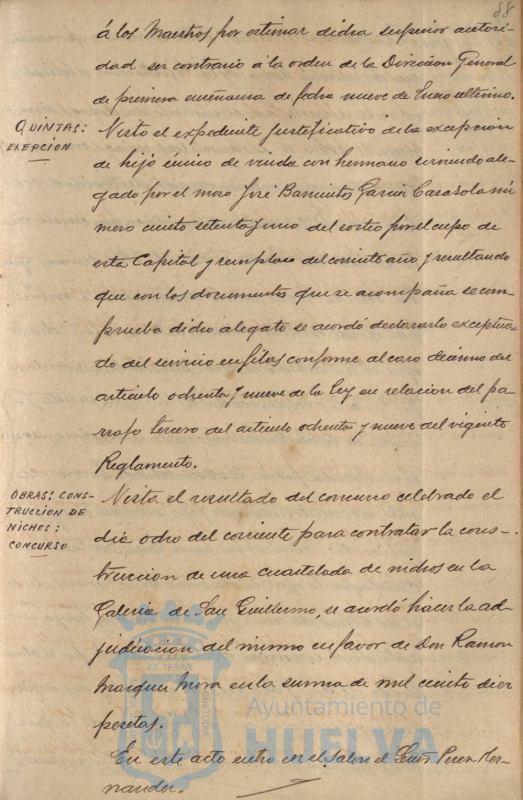 88
á los Maestros por estimar dicha superior autori-
dad ser contrario á la orden de la Direccion General
de primera enseñanza de fecha nueve de Enero ultimo.
QUINTAS:
EXEPCIÓN
Visto el expediente justificativo de la excepcion
de hijo único de viuda con hermano sirviendo ale-
gado por el mozo José Barrientos Garcia Casasola nú
mero ciento setenta y uno del sorteo por el cupo de
esta Capital y reemplazo del corriente año y resultando
que con los documentos que se acompaña se com-
prueba dicho alegato se acordó declararlo exceptua-
do del servicio en filas conforme al caso décimo del
articulo ochenta y nueve de la ley en relacion del pa-
rrafo tercero del articulo ochenta y nueve del vigente
Reglamento.
OBRAS: CONS-
TRUCCION DE
NICHOS:
CONCURSO
Visto el resultado del concurso celebrado el
dia ocho del corriente para contratar la cons-
truccion de una cuartelada de nichos en la
Galeria de San Guillermo, se acordó hacer la ad-
judicacion del mismo en favor de Don Ramon
Marquez Mora en la suma de mil ciento diez
pesetas.
En este acto entro en el Salon el Señor Perez Her-
nandez.
Ayuntamiento de
HUELVA